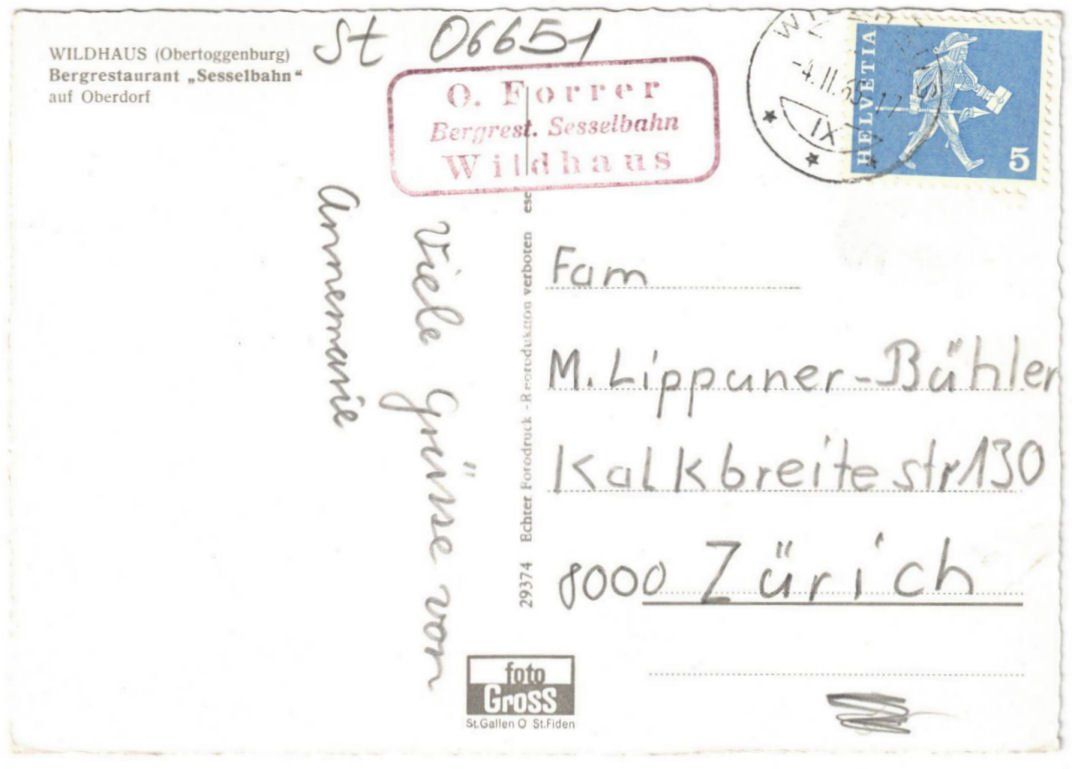 WILDHAUS (Obertoggenburg)
Bergrestaurant „Sesselbahn“
auf Oberdorf
St 06651
O. Forrer
Bergrest. Sesselbahn
Wildhaus
HELVETIA
5
-4.II.
IX
Viele Grüsse von
Annemarie
29374 Echter Fotodruck - Reproduktion verboten
Fam
M. Lippuner-Bühler
Kalkbreitestr 130
8000 Zürich
foto
Gross
St.Gallen O St.Fiden